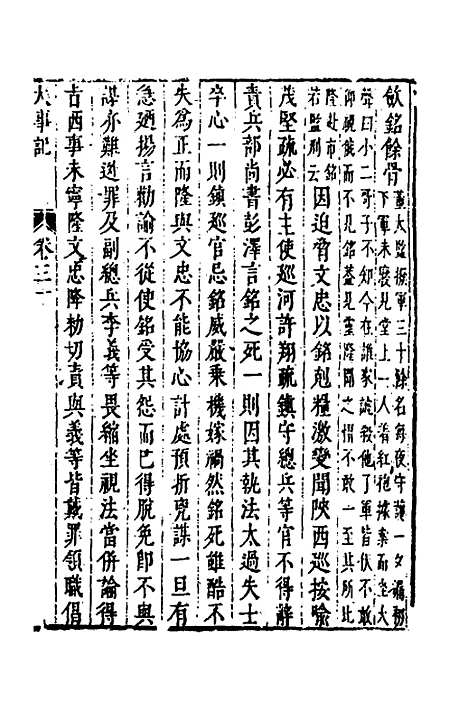 飲銘餘骨董太監撥軍三十餘名每夜守護一夕滿
下軍未寢見堂上一人着紅袍據案而坐大
聲曰小二哥子不知今在誰家說殺他了軍皆伏不敢
仰視俄而不見銘蓋見靈隆聞之惧不敢一至其所
隆赴市銘
若監刑云因迫脅文忠以銘剋糧激變聞陝西巡按喻
茂堅疏必有主使巡河許翔疏鎮守總兵等官不得辭
責兵部尚書彭澤言銘之死一則因其執法太過失士
卒心一則鎮巡官忌銘威嚴乗機嫁禍然銘死雖酷不
失為正而隆與文忠不能協心計處預折兇謀一旦有
急廼揚言勸論不從使銘受其怨而巳得脫免即不與
謀亦難逃罪及副總兵李義等畏縮坐視法當併論得
吉西事未寧隆文忠降勑切責與義等皆戴罪領職倡
大事記
卷三十